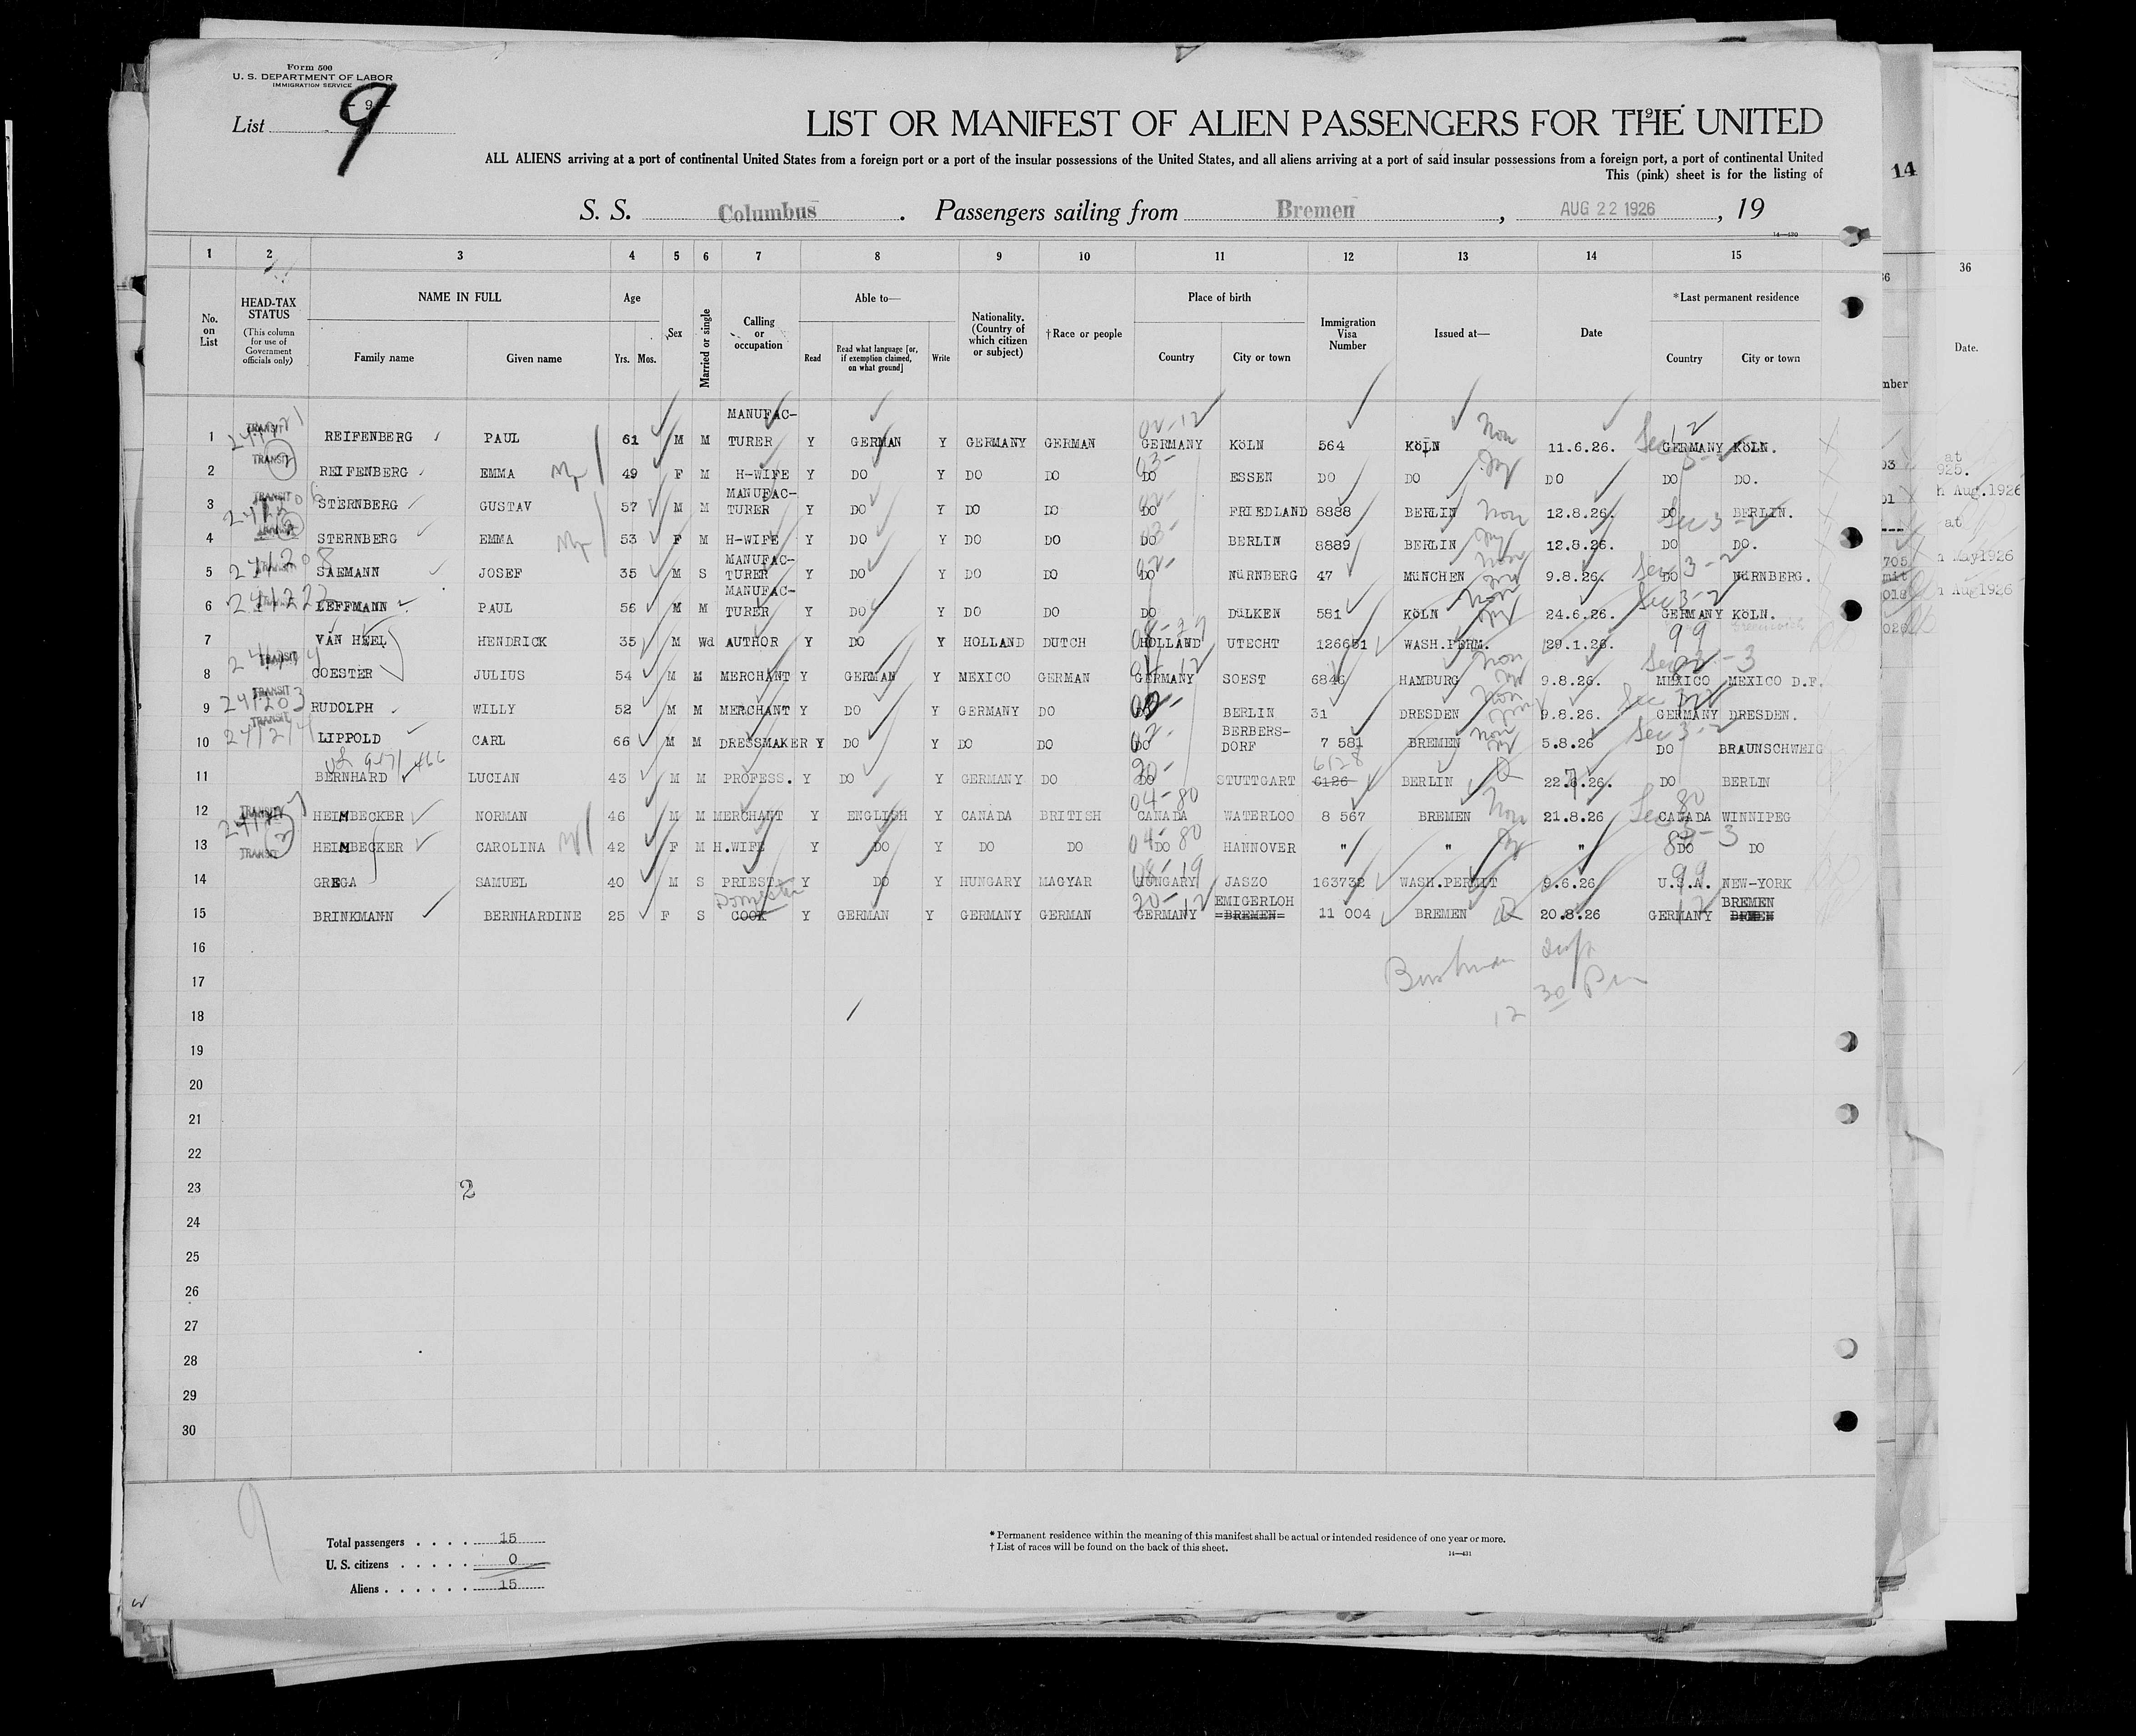 Form 500
U. S. DEPARTMENT OF LABOR
IMMIGRATION SERVICE
- 9 -
List 9
LIST OR MANIFEST OF ALIEN PASSENGERS FOR THE UNITED
ALL ALIENS arriving at a port of continental United States from a foreign port or a port of the insular possessions of the United States, and all aliens arriving at a port of said insular possessions from a foreign port, a port of continental United
This (pink) sheet is for the listing of
14
S. S. Columbus . Passengers sailing from Bremen , AUG 22 1926 , 19
1 2 3 4 5 6 7 8 9 10 11 12 13 14 15
36
No. on List
HEAD-TAX STATUS
(This column for use of Government officials only)
NAME IN FULL
Family name Given name
Age
Yrs. Mos.
Sex
Married or single
Calling or occupation
Able to—
Read
Read what language [or, if exemption claimed, on what ground]
Write
Nationality. (Country of which citizen or subject)
†Race or people
Place of birth
Country City or town
Immigration Visa Number
Issued at—
Date
*Last permanent residence
Country City or town
Date.
1 TRANSIT REIFENBERG PAUL 61 M M MANUFAC-TURER Y GERMAN Y GERMANY GERMAN GERMANY KÖLN 564 KÖLN 11.6.26. GERMANY KÖLN.
2 TRANSIT REIFENBERG EMMA 49 F M H-WIFE Y DO Y DO DO DO ESSEN DO DO DO DO DO.
3 TRANSIT STERNBERG GUSTAV 57 M M MANUFAC-TURER Y DO Y DO DO DO FRIEDLAND 8888 BERLIN 12.8.26. DO BERLIN.
4 STERNBERG EMMA 53 F M H-WIFE Y DO Y DO DO DO BERLIN 8889 BERLIN 12.8.26. DO DO.
5 241208 SAEMANN JOSEF 35 M S MANUFAC-TURER Y DO Y DO DO DO NüRNBERG 47 MüNCHEN 9.8.26. DO NüRNBERG.
6 241222 LEFFMANN PAUL 56 M M MANUFAC-TURER Y DO Y DO DO DO DüLKEN 581 KÖLN 24.6.26. GERMANY KÖLN.
7 VAN HEEL HENDRICK 35 M Wd AUTHOR Y DO Y HOLLAND DUTCH HOLLAND UTECHT 126651 WASH.PERM. 29.1.26. 99
8 TRANSIT COESTER JULIUS 54 M M MERCHANT Y GERMAN Y MEXICO GERMAN GERMANY SOEST 6846 HAMBURG 9.8.26. MEXICO MEXICO D.F.
9 TRANSIT 241203 RUDOLPH WILLY 52 M M MERCHANT Y DO Y GERMANY DO BERLIN 31 DRESDEN 9.8.26. GERMANY DRESDEN.
10 TRANSIT 241214 LIPPOLD CARL 66 M M DRESSMAKER Y DO Y DO DO DO BERBERS-DORF 7 581 BREMEN 5.8.26 DO BRAUNSCHWEIG
11 BERNHARD LUCIAN 43 M M PROFESS. Y DO Y GERMANY DO DO STUTTGART 6126 6128 BERLIN 22.7.26. DO BERLIN
12 TRANSIT HEIMBECKER NORMAN 46 M M MERCHANT Y ENGLISH Y CANADA BRITISH 04-80 CANADA WATERLOO 8 567 BREMEN 21.8.26 CANADA WINNIPEG
13 TRANSIT HEIMBECKER CAROLINA 42 F M H.WIFE Y DO Y DO DO 04-80 DO HANNOVER " " " DO DO
14 GREGA SAMUEL 40 M S PRIEST Y DO Y HUNGARY MAGYAR 08-19 HUNGARY JASZO 163732 WASH.PERMIT 9.6.26 99 U.S.A. NEW-YORK
15 BRINKMANN BERNHARDINE 25 F S Domestic COOK Y GERMAN Y GERMANY GERMAN 20-12 GERMANY EMIGERLOH =BREMEN= 11 004 BREMEN 20.8.26 12 GERMANY BREMEN
16
17
18
19
20
21
22
23 2
24
25
26
27
28
29
30
12 30 Pm
Total passengers . . . . 15
U. S. citizens . . . . . 0
Aliens . . . . . . 15
* Permanent residence within the meaning of this manifest shall be actual or intended residence of one year or more.
† List of races will be found on the back of this sheet.
14—431